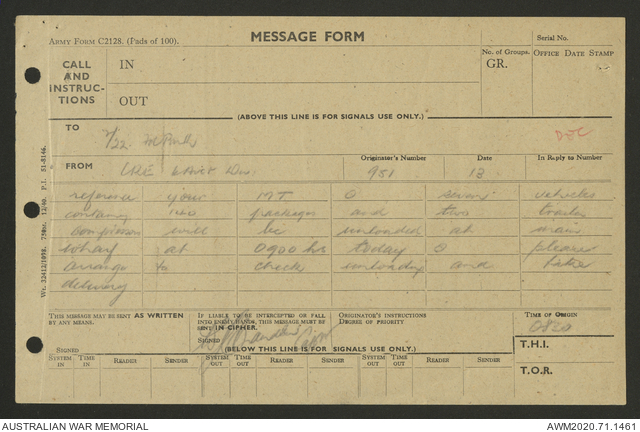 ARMY FORM C2128. (Pads of 100).
MESSAGE FORM
Serial No.
CALL AND INSTRUC-TIONS
IN
OUT
No. of Groups.
GR.
OFFICE DATE STAMP
(ABOVE THIS LINE IS FOR SIGNALS USE ONLY.)
TO
2/22
DEC
FROM
CRE
Div.
Originator's Number
951
Date
13
In Reply to Number
reference your MT O seven vehicles
containing 140 packages and two trailer
compressors will be unloaded at main
wharf at 0900 hrs today O please
arrange to check unloading and
delivery
THIS MESSAGE MAY BE SENT AS WRITTEN BY ANY MEANS.
IF LIABLE TO BE INTERCEPTED OR FALL INTO ENEMY HANDS, THIS MESSAGE MUST BE SENT IN CIPHER.
ORIGINATOR'S INSTRUCTIONS
DEGREE OF PRIORITY
TIME OF ORIGIN
0820
SIGNED
SIGNED
(BELOW THIS LINE IS FOR SIGNALS USE ONLY.)
T.H.I.
SYSTEM IN
TIME IN
READER
SENDER
SYSTEM OUT
TIME OUT
READER
SENDER
SYSTEM OUT
TIME OUT
READER
SENDER
T.O.R.
AUSTRALIAN WAR MEMORIAL
AWM2020.71.1461